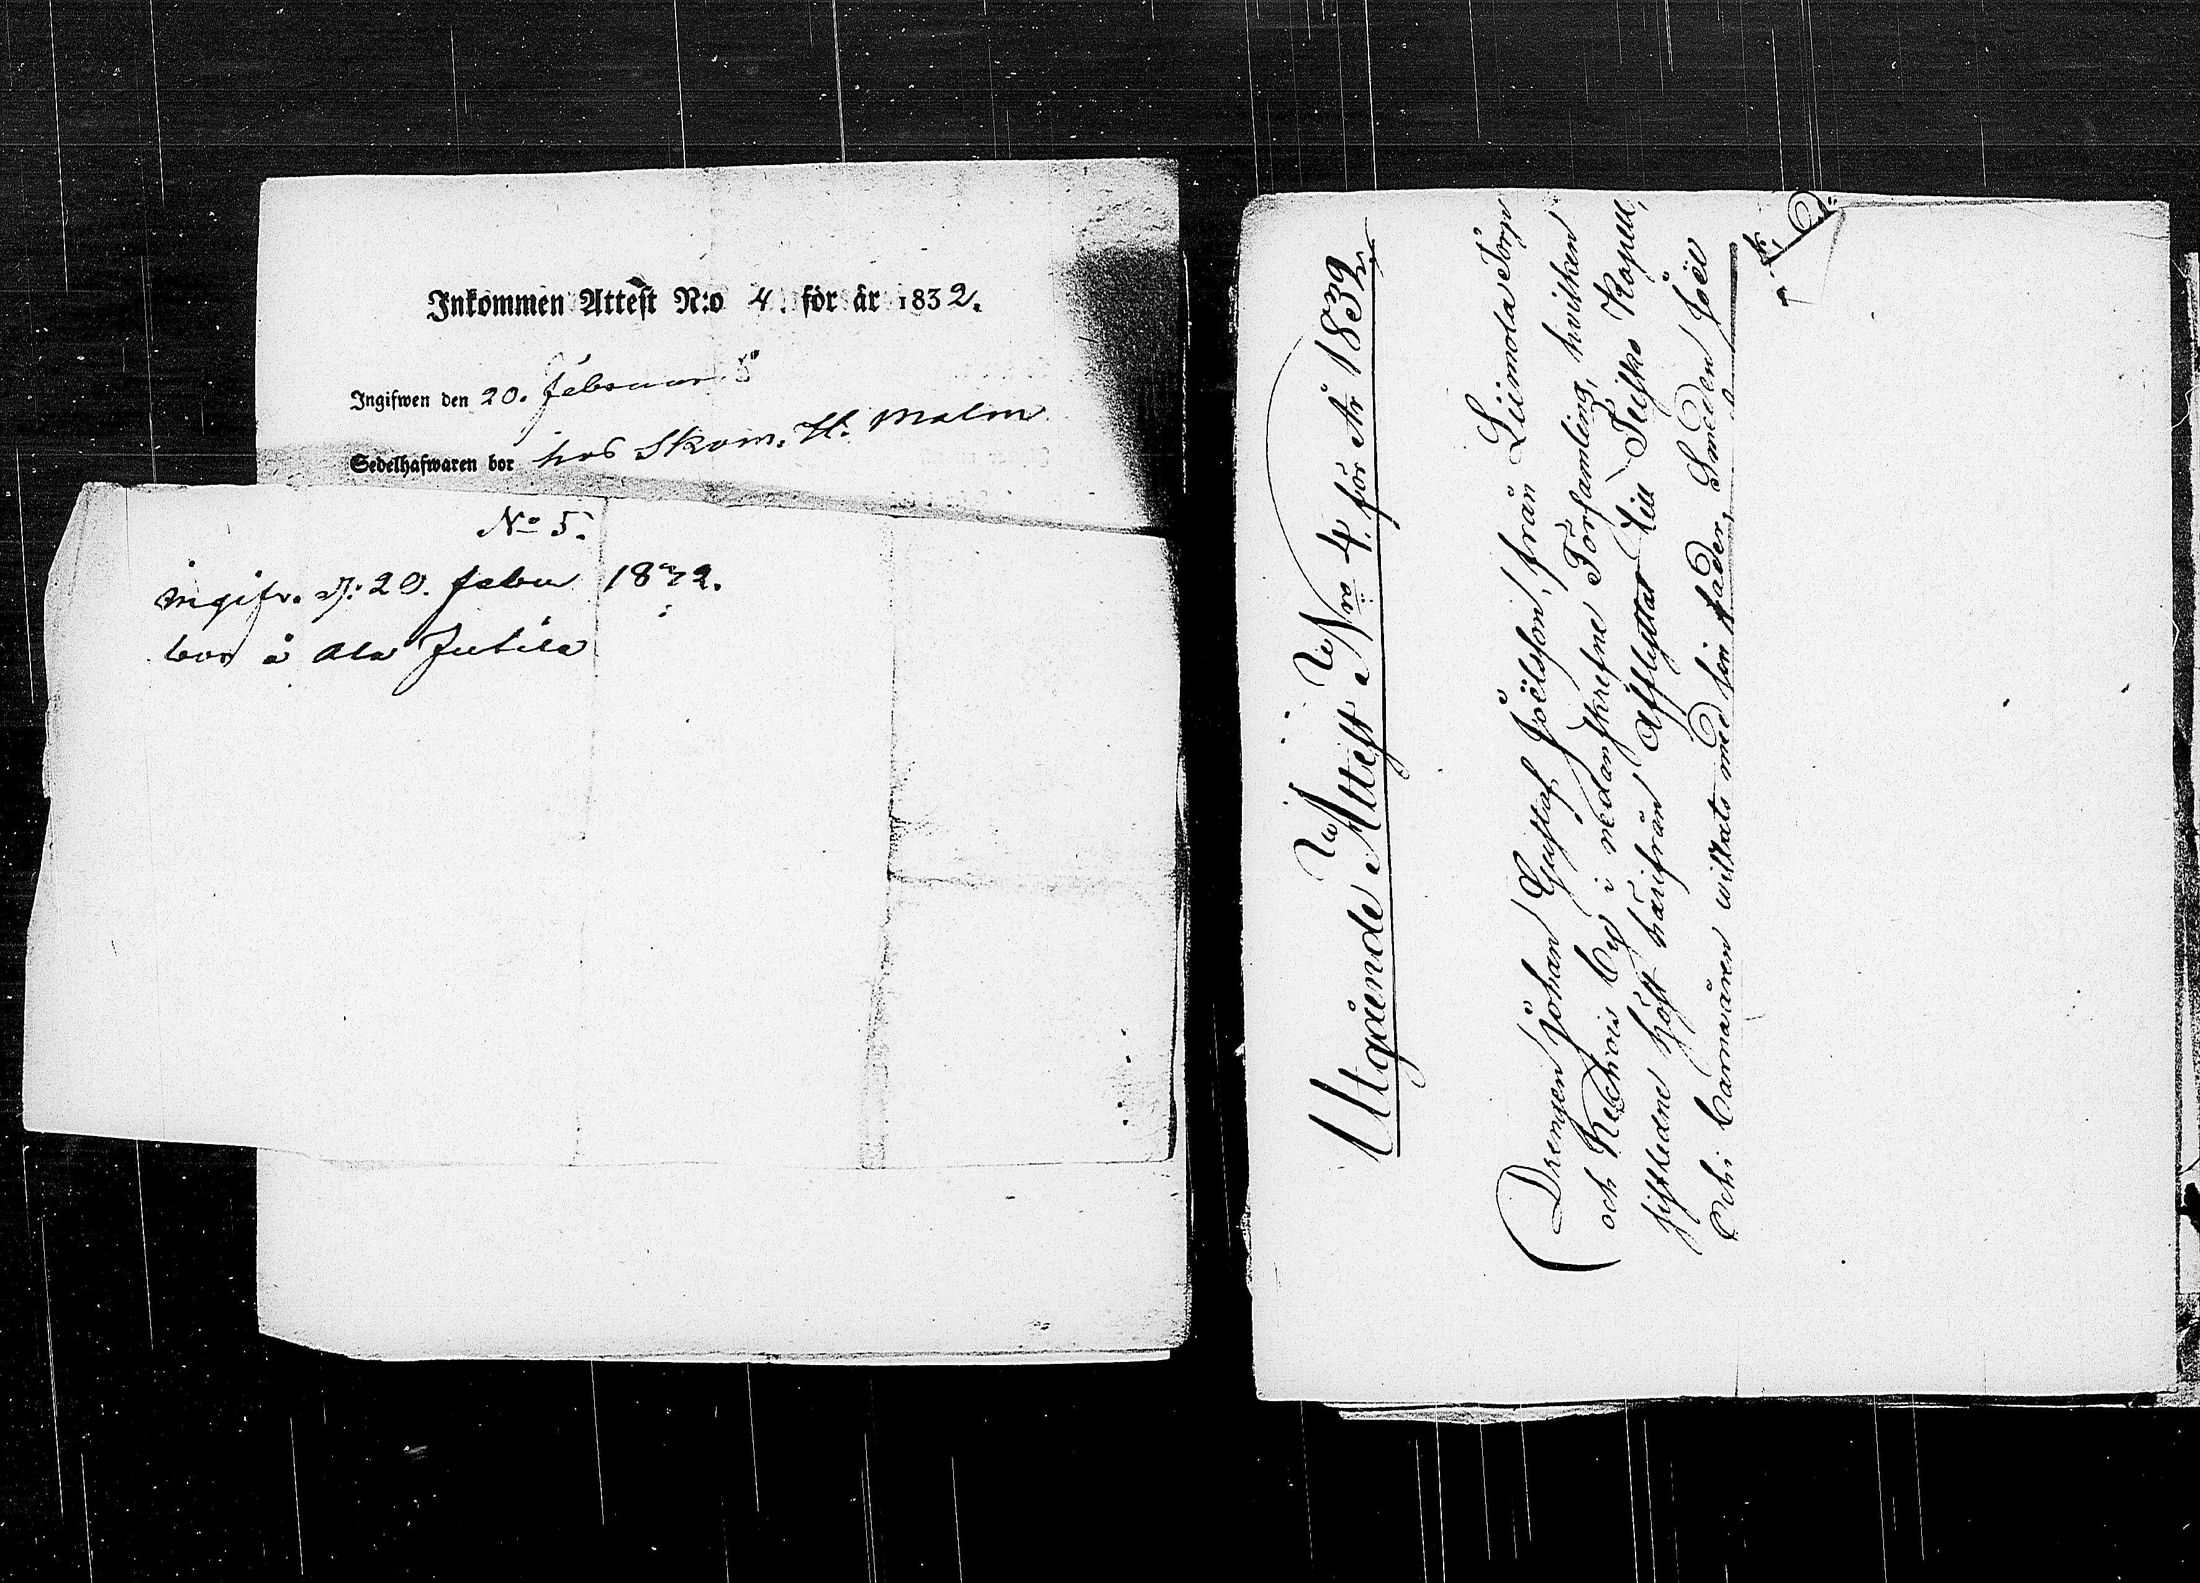 Inkommen Attest N:o 4. för år 1832.
Ingifwen den 20. Februari
Sedelhafwaren bor hos Skom. H. Malm
No 5.
ingifv. d: 20. Febru 1832.
bor å Ala Jutila
Utgående Attest Nro 4. för År 1832
Drengen Johan Gustaf Joëlsson, från Liimola Torp
och by i nedanskrefne Församling, hvilken
sistledne höst härifrån afflyttat till Teisko Kapell,
och i barnaåren wistats med sin fader, Smeden Joël